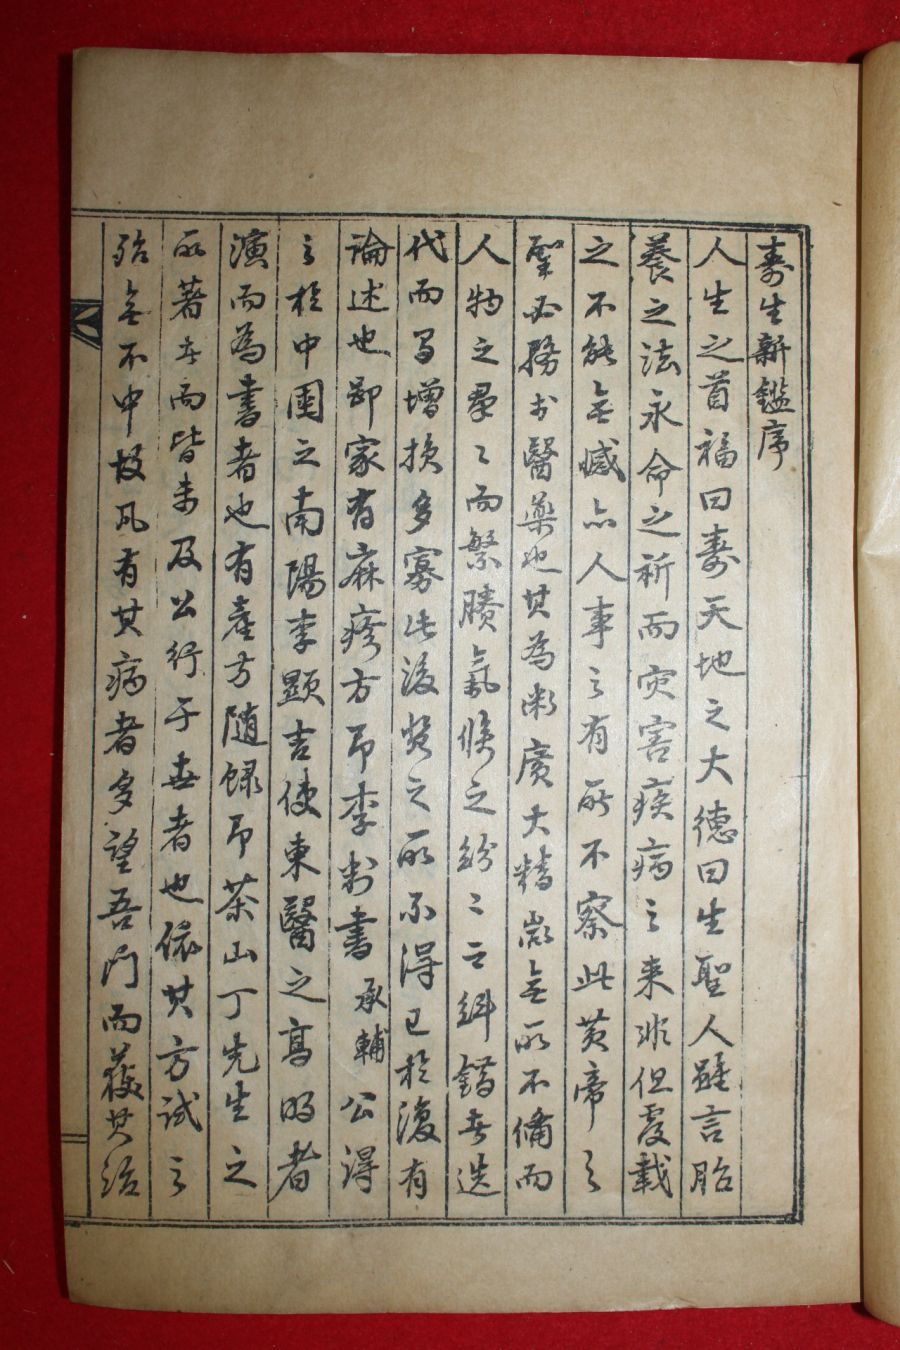 壽生新鑑序
人生之首福曰壽天地之大德曰生聖人雖言胎
養之法永命之祈而灾害疾病之来非但覆載
之不能無憾亦人事之有所不察此黄帝之
聖必務於醫藥也其為術廣大精微無所不備而
人物之羣々而繁賸氣候之紛々亡糾錯世迭
代而易增損多寡此後賢之所不得已於復有
論述也鄙家有麻疹方即李判書承輔公得
之於中國之南陽李顯吉使東醫之高明者
演而為書者也有產方随錄即茶山丁先生之
所著者而皆未及公行于世者也依其方試之
殆無不中故凡有其病者多望吾門而獲其治